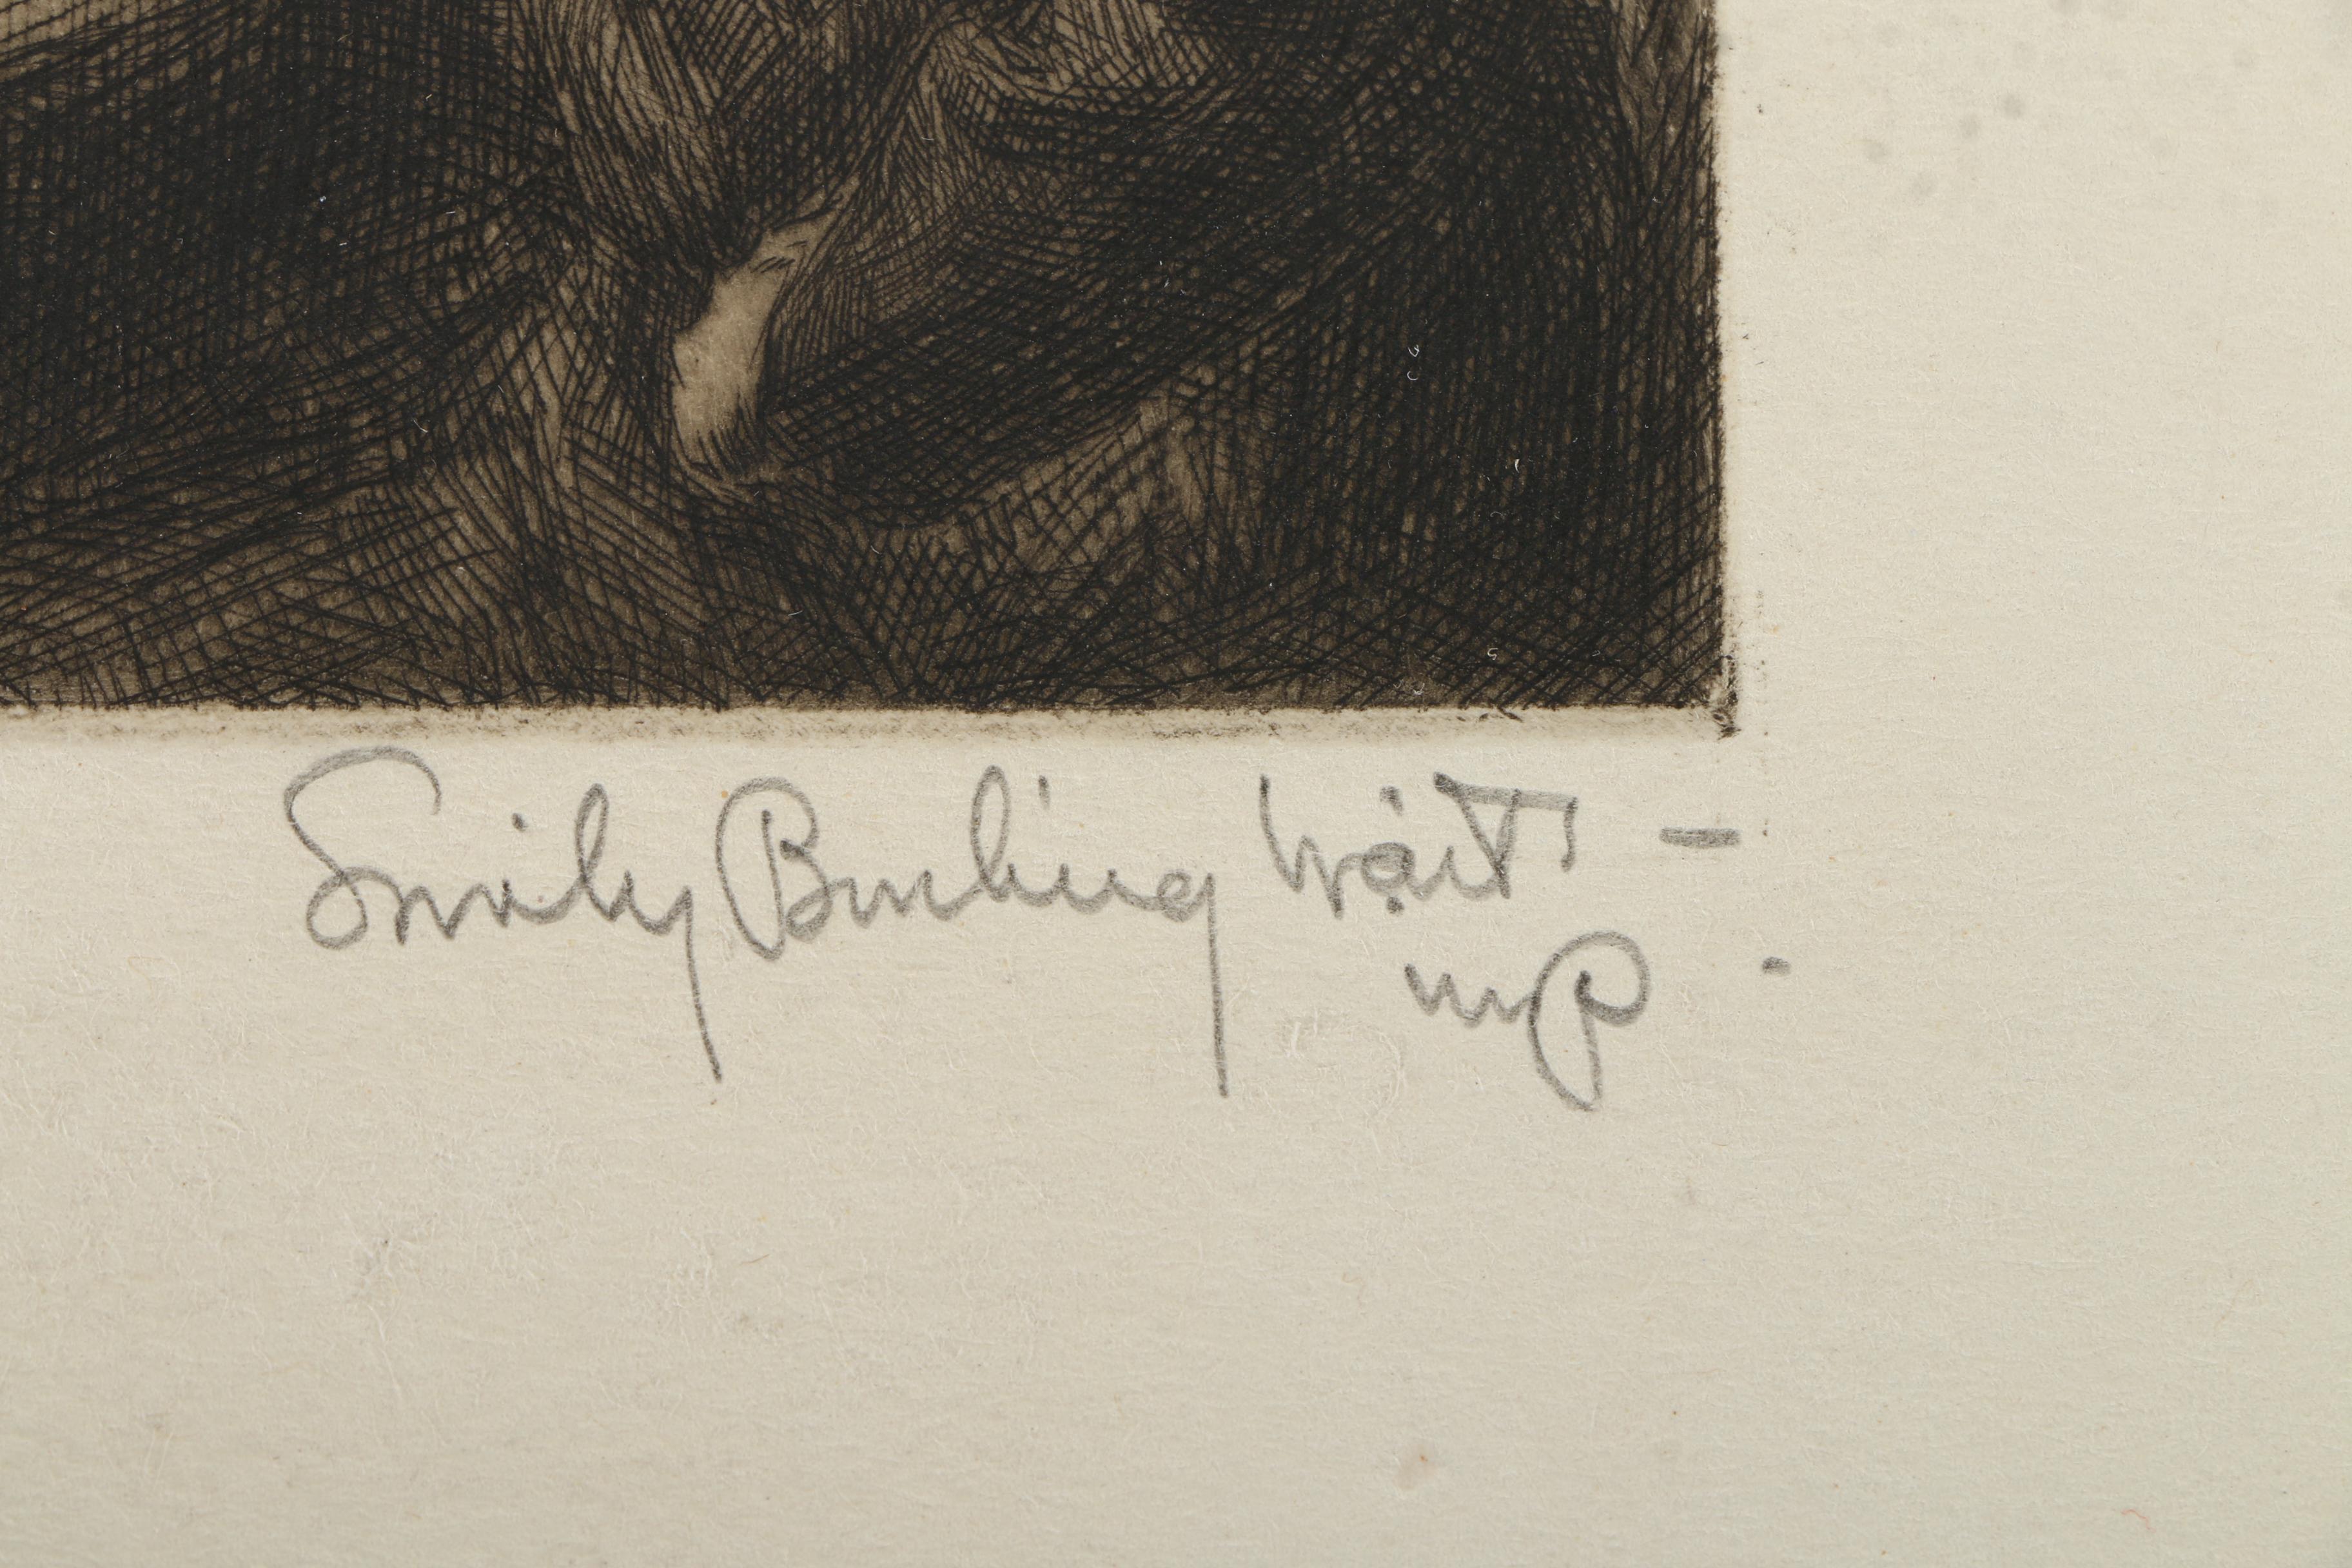 Emily Burling Waite -
imp -